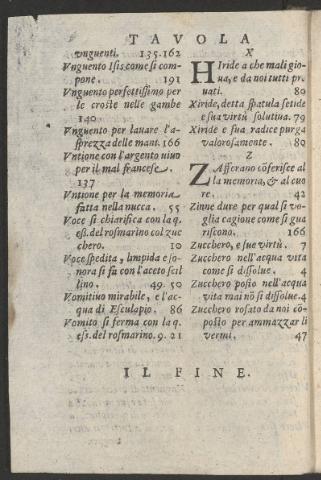 TAVOLA
vnguenti. 135.162
Vnguento Isis come si com-
pone. 191
Vnguento perfettissimo per
le croste nelle gambe
140
Vnguento per lauare l'a-
sprezza delle mant. 166
Vntione con l'argento uiuo
per il mal francese.
137
Vntione per la memoria
fatta nella nucca. 55
Voce si chiarifica con la q.
ess. del rosmarino col zuc
chero. 10
Voce spedita, limpida e so-
nora si fa con l'aceto scil
lino. 49. 50
Vomitiuo mirabile, e l'ac-
qua di Esculapio. 86
Vomito si ferma con la q.
ess. del rosmarino. 9. 21
X
HIride a che mali gio-
ua, e da noi tutti pr.
uati. 80
Xiride, detta spatula fetide
e sua virtù solutiua. 79
Xiride e sua radice purga
valorosamente. 80
Z
ZAfferano cōferisce al
la memoria, & al cuo
re. 42
Zinne dure per qual si vo-
glia cagione come si gua
riscono. 166
Zucchero, e sue virtù. 7
Zucchero nell'acqua vita
come si dissolue. 4
Zucchero posto nell'acqua
vita mai nō si dissolue. 4
Zucchero rosato da noi cō-
posto per ammazzar li
vermi. 47
IL FINE.